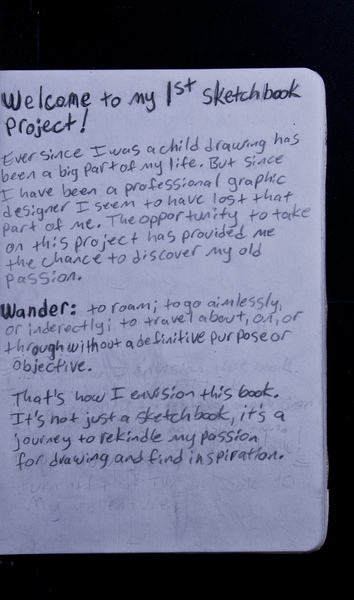 Welcome to my 1st sketchbook
project!
Ever since I was a child drawing has
been a big part of my life. But since
I have been a professional graphic
designer I seem to have lost that
part of me. The opportunity to take
on this project has provided me
the chance to discover my old
passion.
Wander: to roam; to go aimlessly,
or inderectly; to travel about, on, or
through without a definitive purpose or
objective.
That's how I envision this book.
It's not just a sketchbook, it's a
journey to rekindle my passion
for drawing and find inspiration.